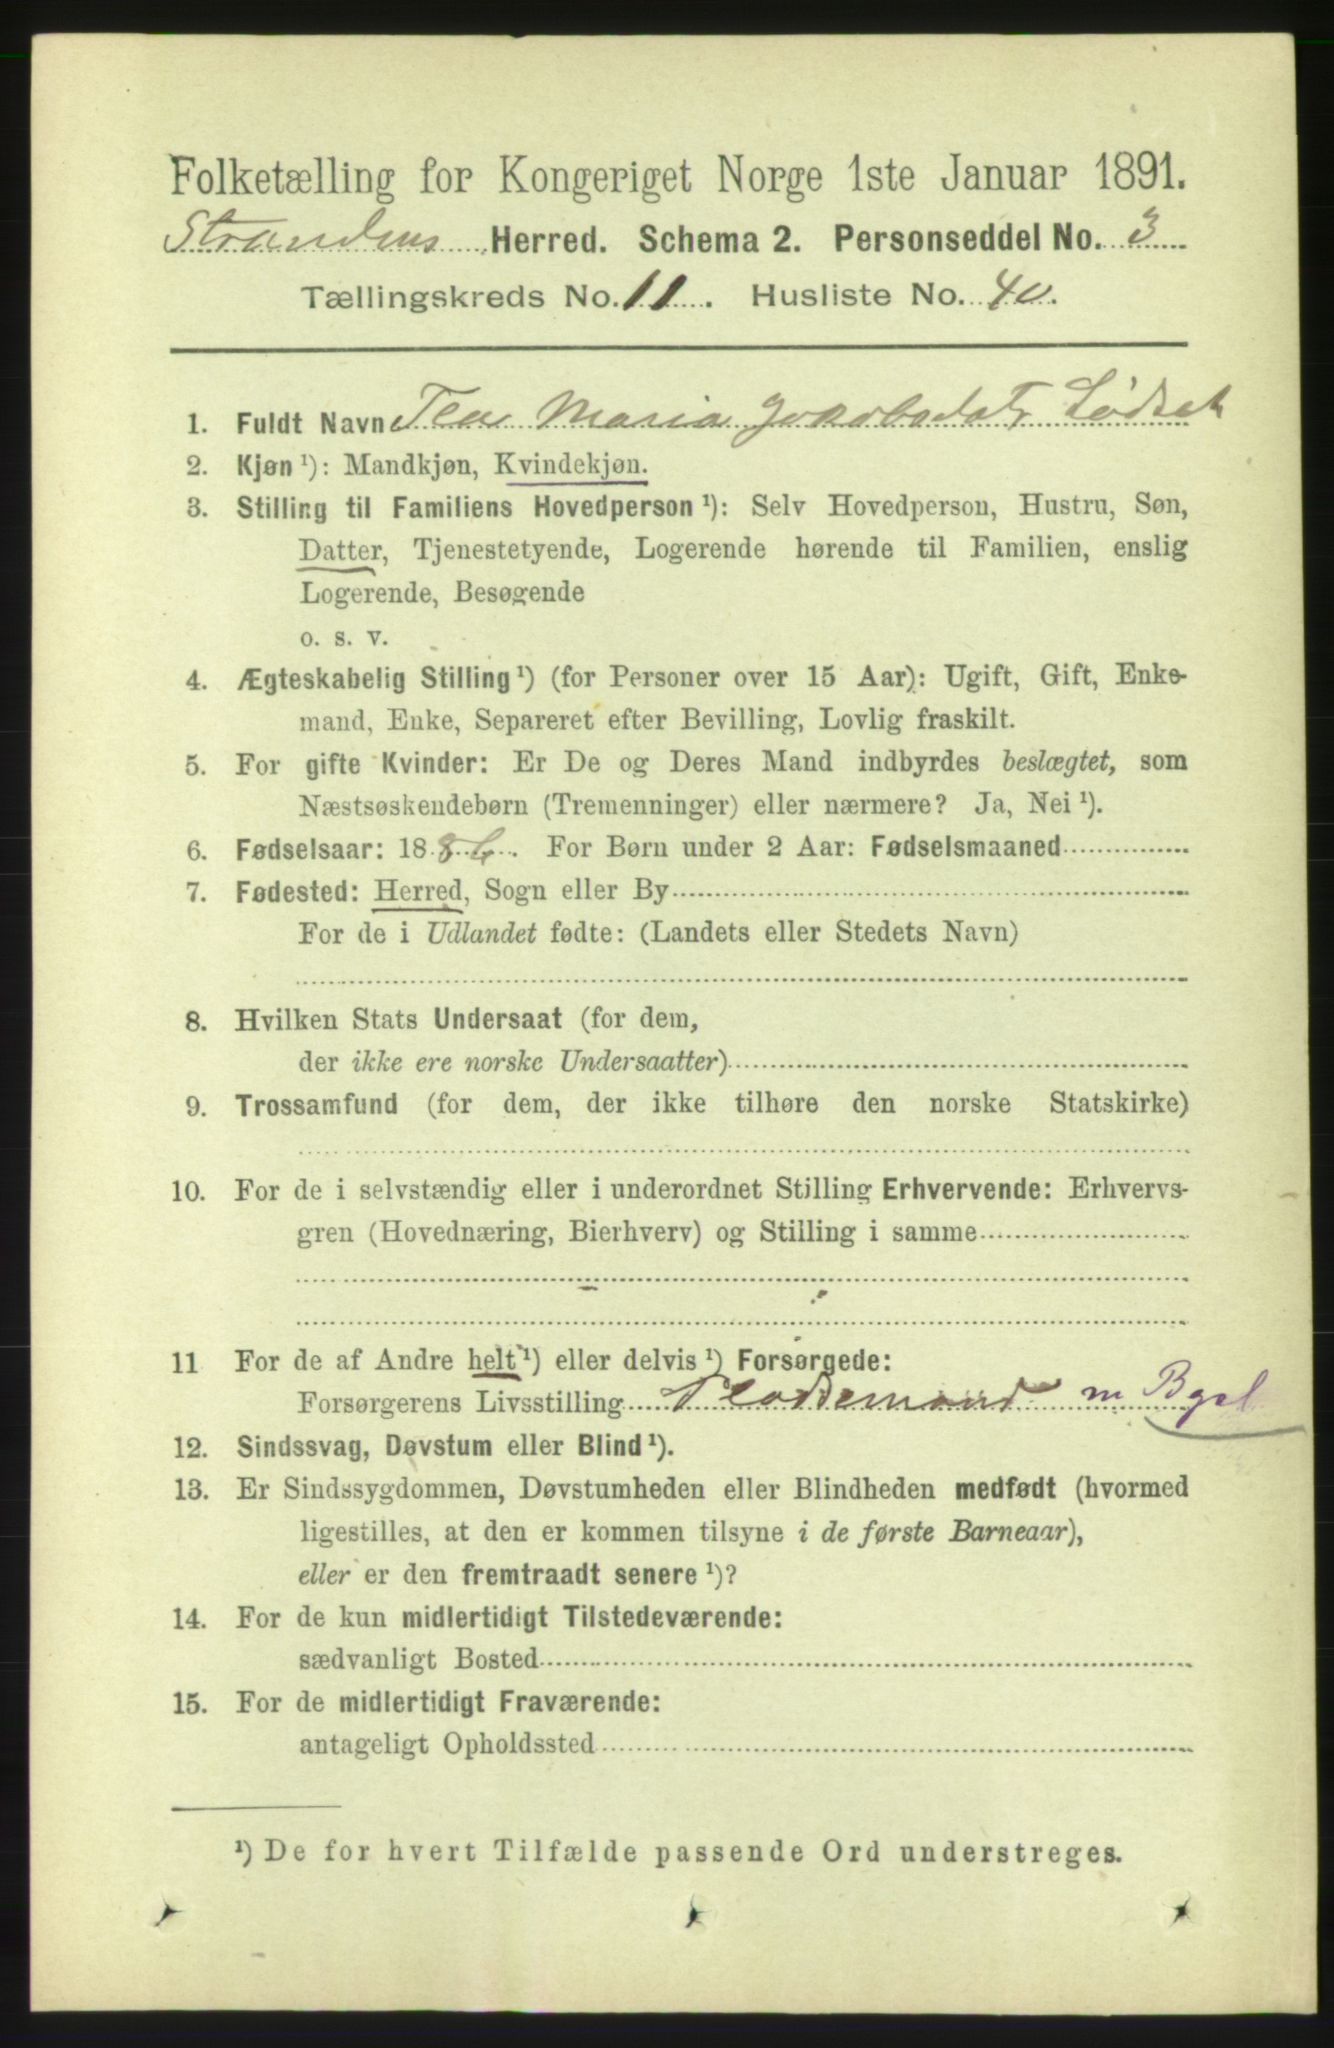 Folketælling for Kongeriget Norge 1ste Januar 1891.
Strandens Herred. Schema 2. Personseddel No. 3
Tællingskreds No. 11. Husliste No. 40.
1. Fuldt Navn Tea Maria Jakobsdatr Lødset
2. Kjøn ¹): Mandkjøn, Kvindekjøn.
3. Stilling til Familiens Hovedperson ¹): Selv Hovedperson, Hustru, Søn,
Datter, Tjenestetyende, Logerende hørende til Familien, enslig
Logerende, Besøgende
o. s. v.
4. Ægteskabelig Stilling ¹) (for Personer over 15 Aar): Ugift, Gift, Enke-
mand, Enke, Separeret efter Bevilling, Lovlig fraskilt.
5. For gifte Kvinder: Er De og Deres Mand indbyrdes beslægtet, som
Næstsøskendebørn (Tremenninger) eller nærmere? Ja, Nei ¹).
6. Fødselsaar: 1886. For Børn under 2 Aar: Fødselsmaaned
7. Fødested: Herred, Sogn eller By
For de i Udlandet fødte: (Landets eller Stedets Navn)
8. Hvilken Stats Undersaat (for dem,
der ikke ere norske Undersaatter)
9. Trossamfund (for dem, der ikke tilhøre den norske Statskirke)
10. For de i selvstændig eller i underordnet Stilling Erhvervende: Erhvervs-
gren (Hovednæring, Bierhverv) og Stilling i samme
11 For de af Andre helt ¹) eller delvis ¹) Forsørgede:
Forsørgerens Livsstilling m Bgsl
12. Sindssvag, Døvstum eller Blind ¹).
13. Er Sindssygdommen, Døvstumheden eller Blindheden medfødt (hvormed
ligestilles, at den er kommen tilsyne i de første Barneaar),
eller er den fremtraadt senere ¹)?
14. For de kun midlertidigt Tilstedeværende:
sædvanligt Bosted
15. For de midlertidigt Fraværende:
antageligt Opholdssted
¹) De for hvert Tilfælde passende Ord understreges.